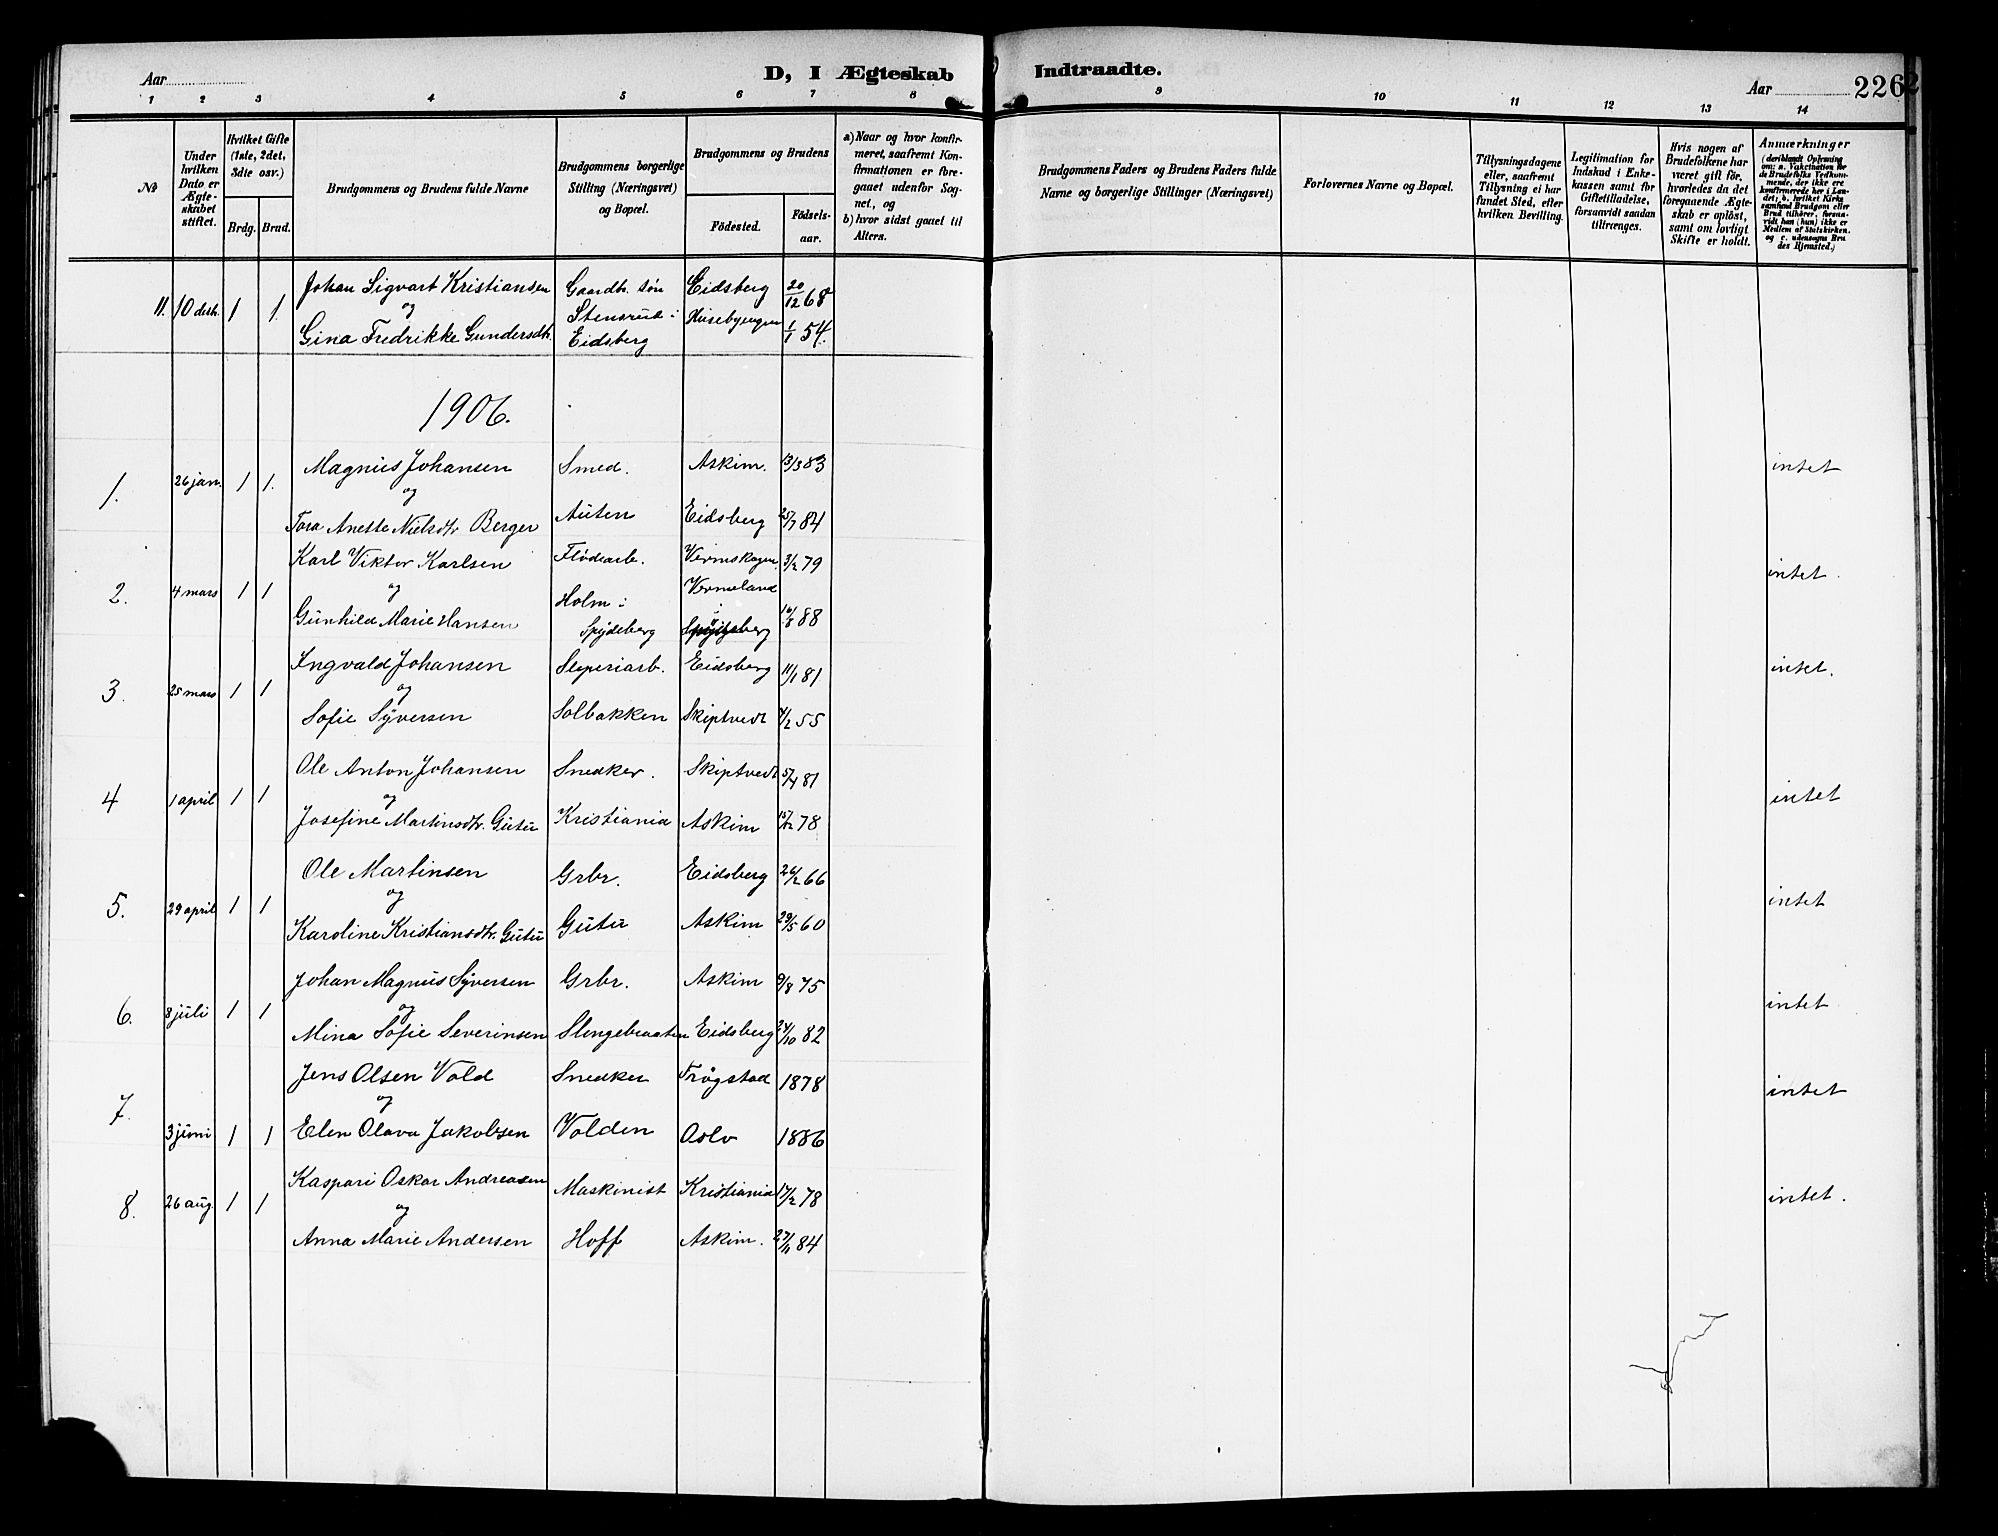 Aar
D, I Ægteskab
Indtraadte.
Aar
226
1 2 3 4 5 6 7 8 9 10 11 12 13 14
No
Under hvilken Dato er Ægteskabet stiftet.
Hvilket Gifte (1ste, 2det, 3dte osv.)
Brdg. Brud.
Brudgommens og Brudens fulde Navne
Brudgommens borgerlige Stilling (Næringsvei) og Bopæl.
Brudgommens og Brudens
Födested.
Födsels-aar.
a) Naar og hvor konfirmeret, saafremt Konfirmationen er foregaaet udenfor Sognet, og
b) hvor sidst gaaet til Alters.
Brudgommens Faders og Brudens Faders fulde Navne og borgerlige Stillinger (Næringsvei)
Forlovernes Navne og Bopæl.
Tillysningsdagene eller, saafremt Tillysning ei har fundet Sted, efter hvilken Bevilling.
Legitimation for Indskud i Enkekassen samt for Giftetilladelse, forsaavidt saadan tiltrænges.
Hvis nogen af Brudefolkene har været gift för, hvorledes da det foregaaende Ægteskab er oplöst, samt om lovligt Skifte er holdt.
Anmærkninger
(deriblandt Oplysning om: a. Vakcination for de Brudefolks Vedkommende, der ikke ere konfirmerede her i Landet; b. hvilket Kirkesamfund Brudgom eller Brud tilhörer, forsaavidt han (hun) ikke er Medlem af Statskirken. og c. udensogns Brudes Hjemsted.)
11. 10 desb. 1 1. Johan Sigvart Kristiansen Gaardbr. søn Eidsberg 20/12 68
og Stensrud i
Gina Fredrikke Gundersdtr. Eidsberg Husebyengen 1/1 54.
1906.
1. 26 jan. 1 1. Magnus Johansen Smed. Askim. 13/3 83 intet
og
Tora Anette Nielsdtr Berger Auten Eidsberg 25/7 84
2. 4 mars 1 1 Karl Viktor Karlsen Flødearb. Vermskogen 3/2 79 intet.
og Holm i Vermeland
Gunhild Marie Hansen Spydeberg 10/8 88
3. 25 mars 1 1 Ingvald Johansen Sleperiarb. Eidsberg 11/1 81 intet.
og
Sofie Syversen Solbakken Skiptvedt 4/2 55
4 1 april 1 1 Ole Anton Johansen Snedker. Skiptvedt 5/4 81 intet
og
Josefine Martinsdtr. Gutu Kristiania Askim 15/12 78
5. 29 april 1 1 Ole Martinsen Grbr. Eidsberg 26/2 66 intet
og
Karoline Kristiansdtr. Gutu Gutu Askim 29/5 60
6. 8 juli 1 1 Johan Magnus Syversen Grbr. Askim 9/8 75 intet
og
Mina Sofie Severinsen Slengebraaten Eidsberg 24/10 82
7. 3 juni 1 1 Jens Olsen Vold Snedker Trøgstad 1878 intet
og
Elen Olava Jakobsen Volden Oslo 1886
8. 26 aug. 1 1 Kaspari Oskar Andreasen Maskinist Kristiania 17/2 78 intet.
og
Anna Marie Andersen Hoff Askim. 27/11 84